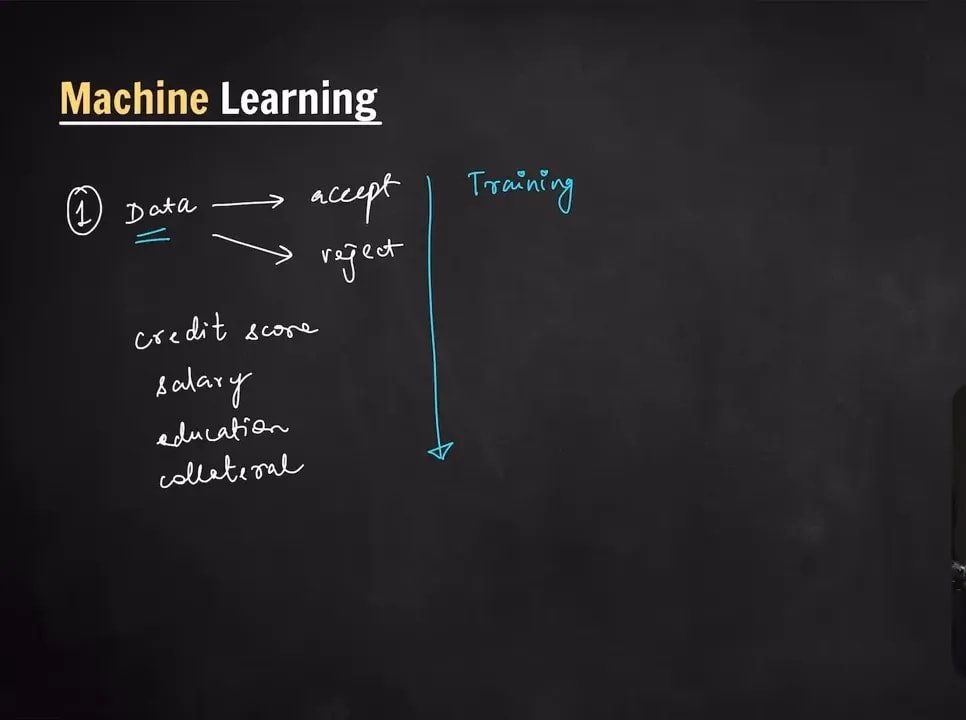 Machine Learning
1 Data → accept
→ reject
Training
credit score
salary
education
collateral